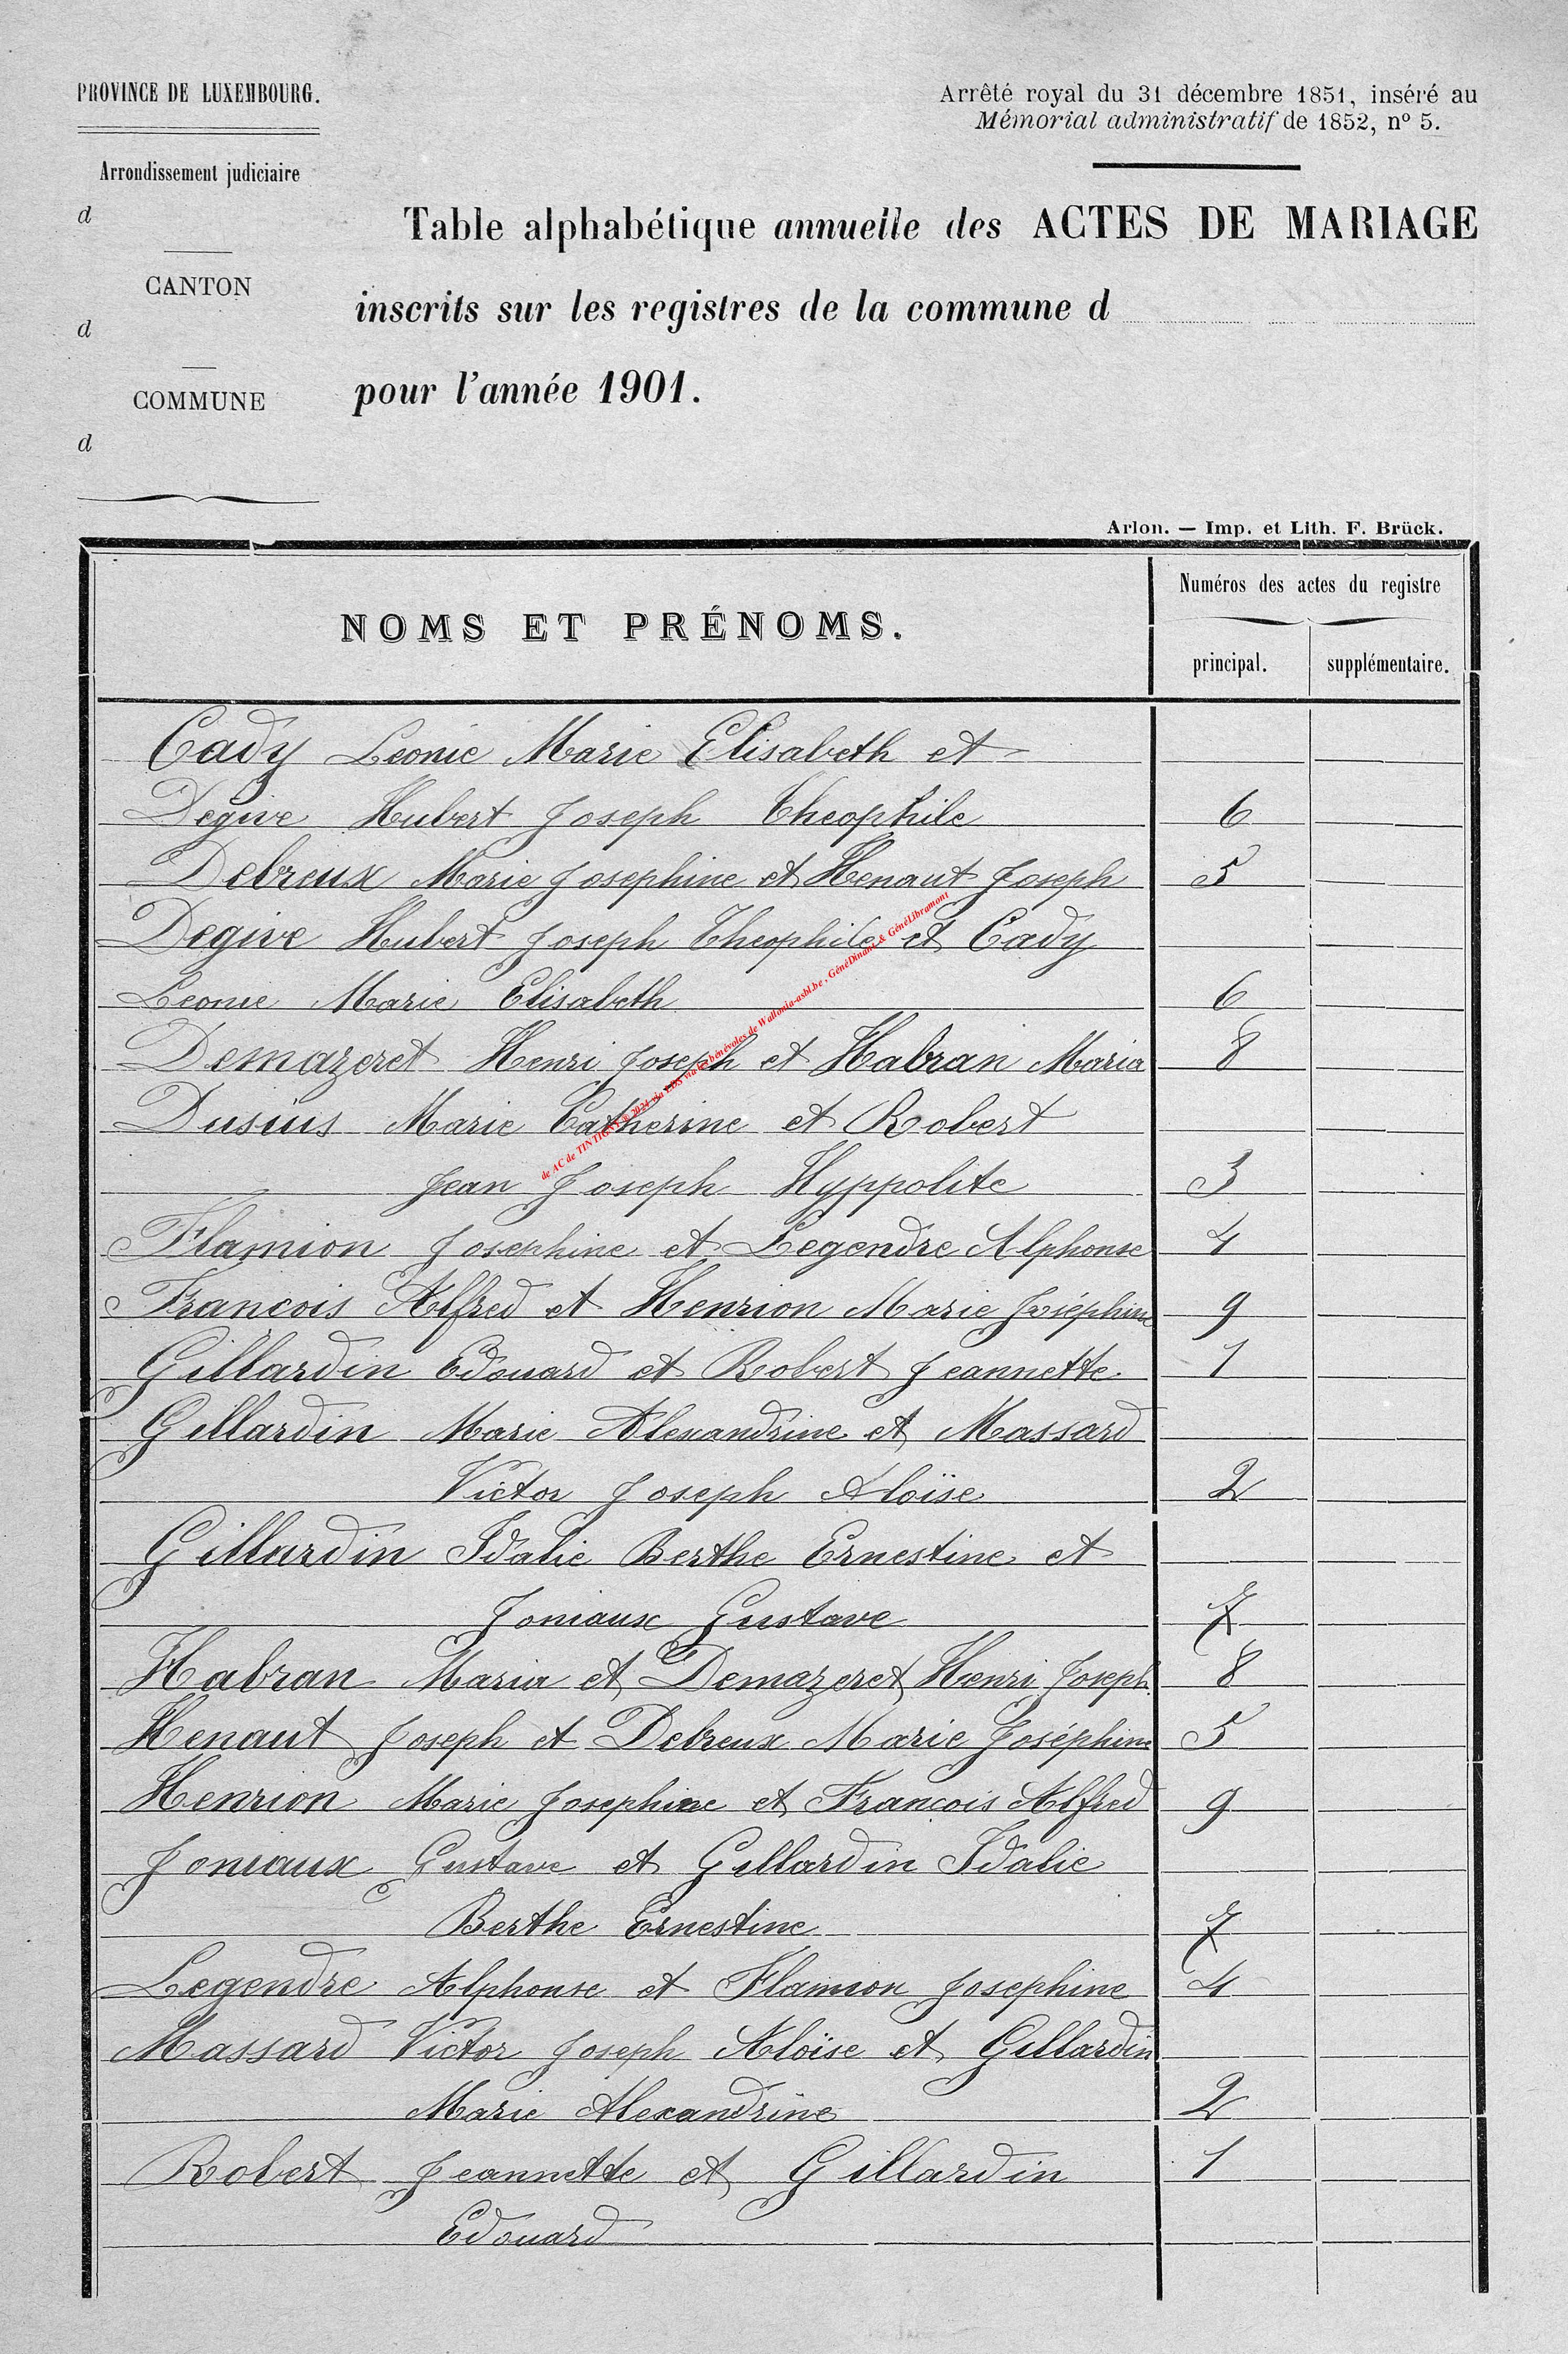 PROVINCE DE LUXEMBOURG.
Arrêté royal du 31 décembre 1851, inséré au
Mémorial administratif de 1852, nº 5.
Arrondissement judiciaire
d
Table alphabétique annuelle des ACTES DE MARIAGE
CANTON
inscrits sur les registres de la commune d
d
pour l'année 1901.
COMMUNE
d
Arlon. — Imp. et Lith. F. Brück.
NOMS ET PRÉNOMS.
Numéros des actes du registre
principal. supplémentaire.
Cady Leonie Marie Elisabeth et
Degive Hubert Joseph Theophile 6
Debreux Marie Josephine et Henaut Joseph 5
Degive Hubert Joseph Theophile et Cady
Leonie Marie Elisabeth 6
Demazeret Henri Joseph et Habran Maria 8
Dusius Marie Catherine et Robert
Jean Joseph Hyppolite 3
Flamion Josephine et Legendre Alphonse 4
Francois Alfred et Henrion Marie Joséphine 9
Gillardin Edouard et Robert Jeannette 1
Gillardin Marie Alexandrine et Massard
Victor Joseph Aloïse 2
Gillardin Idalie Berthe Ernestine et
Joniaux Gustave 7
Habran Maria et Demazeret Henri Joseph 8
Henaut Joseph et Debreux Marie Joséphine 5
Henrion Marie Josephine et Francois Alfred 9
Joniaux Gustave et Gillardin Idalie
Berthe Ernestine 7
Legendre Alphonse et Flamion Josephine 4
Massard Victor Joseph Aloïse et Gillardin
Marie Alexandrine 2
Robert Jeannette et Gillardin 1
Edouard
de AC de TINTIGNY © 2024 via les bénévoles de Wallonia-asbl.be, GénéDinant & GénéLibramont